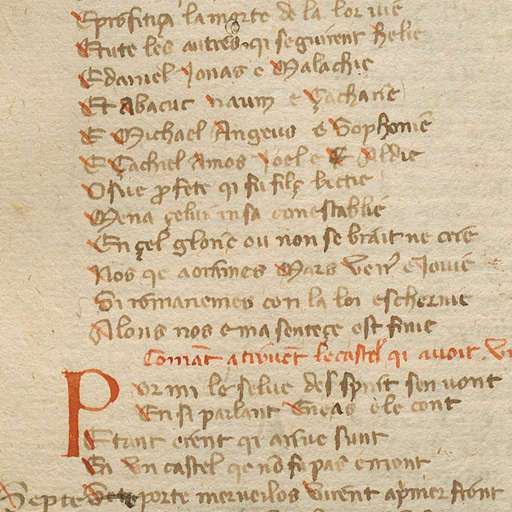 E profitiça la morte de la lor vie
E tute les autres qi seguirent Helie
E daniel Jonas e Malachie
Et Abacuc naum e Çacharie
E Michael Angeus e Sophonie
E Çachiel Amos Joel e Abdie
Osue profete qi fu filz
Mena çelui in sa conestablie
En çel glorie ou non se brait ne crie
Nos qe aorames Mars Ven' e Jovie
Si romanemes con la loi eschernie
Alons nos e ma senteçe est finie
Comāt atrovent le castel qi avoit
Por mi le selve des spirit sen vont
En si parlant Eneas e le cont
E tant erent qi arive sunt
En un castel qe nō fu pas en mont
Septe porte merveilos virent